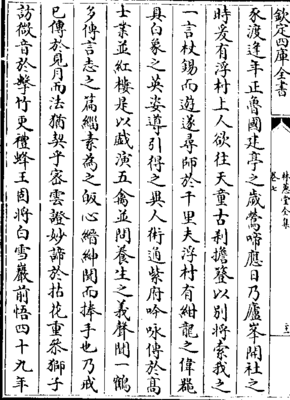 欽定四庫全書
林蕙堂全集
卷七
豕渡逢年正魯國建亭之歲鶯啼應日乃廬峯開社之
時爰有浮村上人欲往天童古刹擔簦以别將索我之
一言杖錫而遊遂尋師於千里夫浮村有紺龍之偉
具白象之英姿導引得之異人術通紫府吟咏傳於高
士業並紅樓是以戲演五禽並問養生之義聲聞一鶴
多傳言志之篇緇素為之皈心縉紳聞而捧手也乃戒
已傳於見月而法猶契乎密雲證妙諦於拈花重叅獅子
訪微音於擊竹更禮蜂王固將白雪巖前悟四十九年